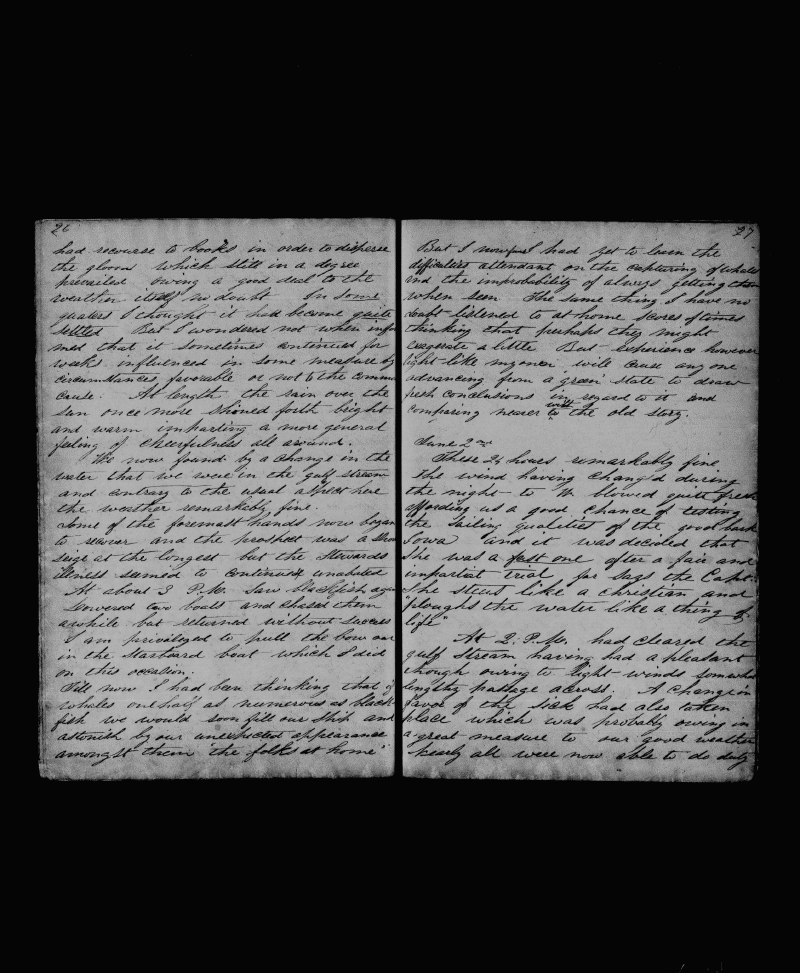 26
had recourse to books in order to disperse
the gloom which still in a degree
prevailed owing a good deal to the
weather itself no doubt In some
quarters I thought it had become quite
settled But I wondered not when infor
med that it sometimes continued for
weeks influenced in some measure by
circumstances favorable or not to the common
cause. At length the rain over the
sun once more shoned forth bright
and warm imparting a more general
feeling of cheerfulness all around.
We now found by a change in the
water that we were in the gulf stream
and contrary to the usual aspect here
the weather remarkably fine.
Some of the foremast hands now began
to recover and the prospect was a short
seige at the longest but the Stewards
illness seemed to continued unabated
At about 3 P.M. Saw blackfish again
Lowered two boats and chased them
awhile but returned without success
I am privileged to pull the bow oar
in the Starboard boat which I did
on this occasion.
Till now I had been thinking that if
whales one half as numerous as black
fish we would soon fill our Ship and
astonish by our unexpected appearance
amongst them "the folks at home"
27
But I now find had yet to learn the
difficulties attendant on the capturing of whales
and the improbability of always getting them
when seen The same thing I have no
doubt listened to at home scores of times
thinking that perhaps they might
exagerate a little But experience however
light like mine will cause any one
advancing from a "green" state to draw
fresh conclusions in regard to it and
comparing nearer with to the old story.
June 2nd
These 24 hours remarkably fine
The wind having chang'd during
the night to W. blowed quite fresh
affording us a good chance of testing
the Sailing qualities of the good bark
Iowa and it was decided that
She was a fast one after a fair and
impartial trial for says the Capt.
She steers like a christian and
"ploughs the water like a thing of
life"
At 2. P.M. had cleared the
gulf Stream having had a pleasant
though owing to light winds somewhat
lengthy passage across. A change in
favor of the Sick had also taken
place which was probably owing in
a great measure to our good weather
Nearly all were now able to do duty